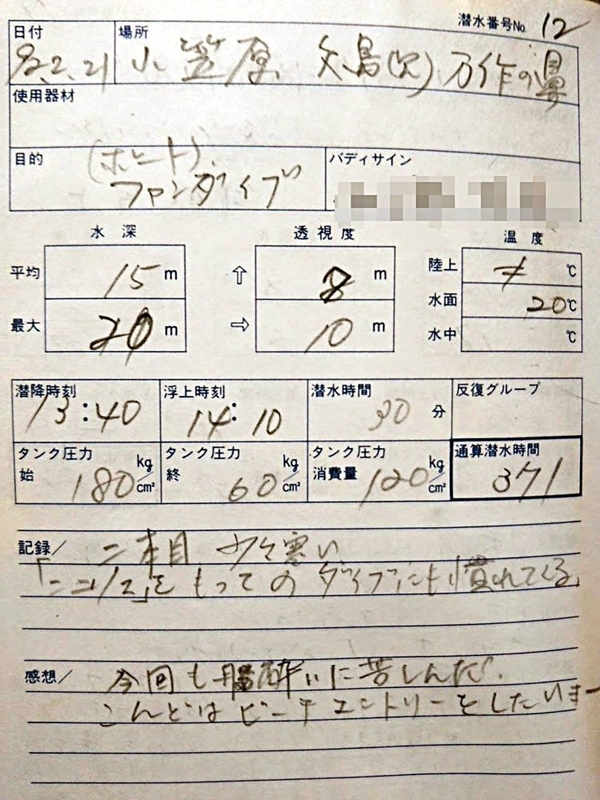 潜水番号No. 12
日付 場所
2.21 小笠原 父島(父) 万作の鼻
使用器材
目的 バディサイン
(ボート)
ファンダイブ
水深 透視度 温度
平均 15 m ⇧ 8 m 陸上 ℃
水面 20℃
最大 20 m ⇨ 10 m 水中 ℃
潜降時刻 浮上時刻 潜水時間 反復グループ
13:40 14:10 30 分
タンク圧力 タンク圧力 タンク圧力 通算潜水時間
始 180 kg/cm² 終 60 kg/cm² 消費量 120 kg/cm² 371
記録/ 二本目 少々寒い
「ニコノス」をもってのダイブにも慣れてくる
感想/ 今回も船酔いに苦しんだ.
こんどはビーチエントリーをしたいまー